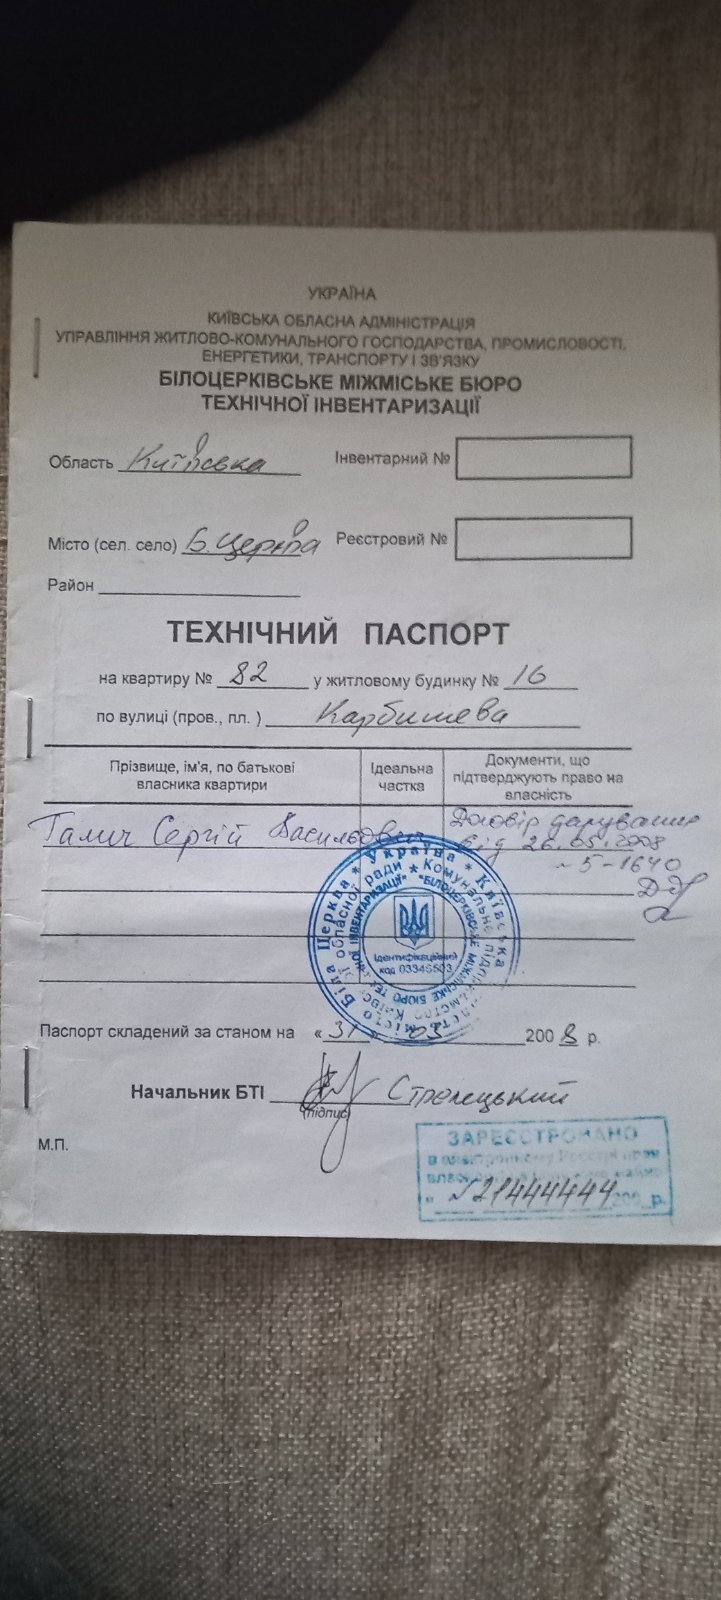 УКРАЇНА
КИЇВСЬКА ОБЛАСНА АДМІНІСТРАЦІЯ
УПРАВЛІННЯ ЖИТЛОВО-КОМУНАЛЬНОГО ГОСПОДАРСТВА, ПРОМИСЛОВОСТІ,
ЕНЕРГЕТИКИ, ТРАНСПОРТУ І ЗВ'ЯЗКУ
БІЛОЦЕРКІВСЬКЕ МІЖМІСЬКЕ БЮРО
ТЕХНІЧНОЇ ІНВЕНТАРИЗАЦІЇ
Область Київська Інвентарний №
Місто (сел. село) Б. Церква Реєстровий №
Район
ТЕХНІЧНИЙ ПАСПОРТ
на квартиру № 82 у житловому будинку № 16
по вулиці (пров., пл. ) Карбишева
Прізвище, ім'я, по батькові власника квартири
Ідеальна частка
Документи, що підтверджують право на власність
Галич Сергій Васильович
Договір дарування
від 26.05.2008
5-1640
Україна * Київська
Біла Церква
Ідентифікаційний
код 03346503
Паспорт складений за станом на «31» 03 2008 р.
Начальник БТІ Стрелецький
(підпис)
М.П.
ЗАРЕЄСТРОВАНО
в електронному Реєстрі прав
№ 21444444 200 р.